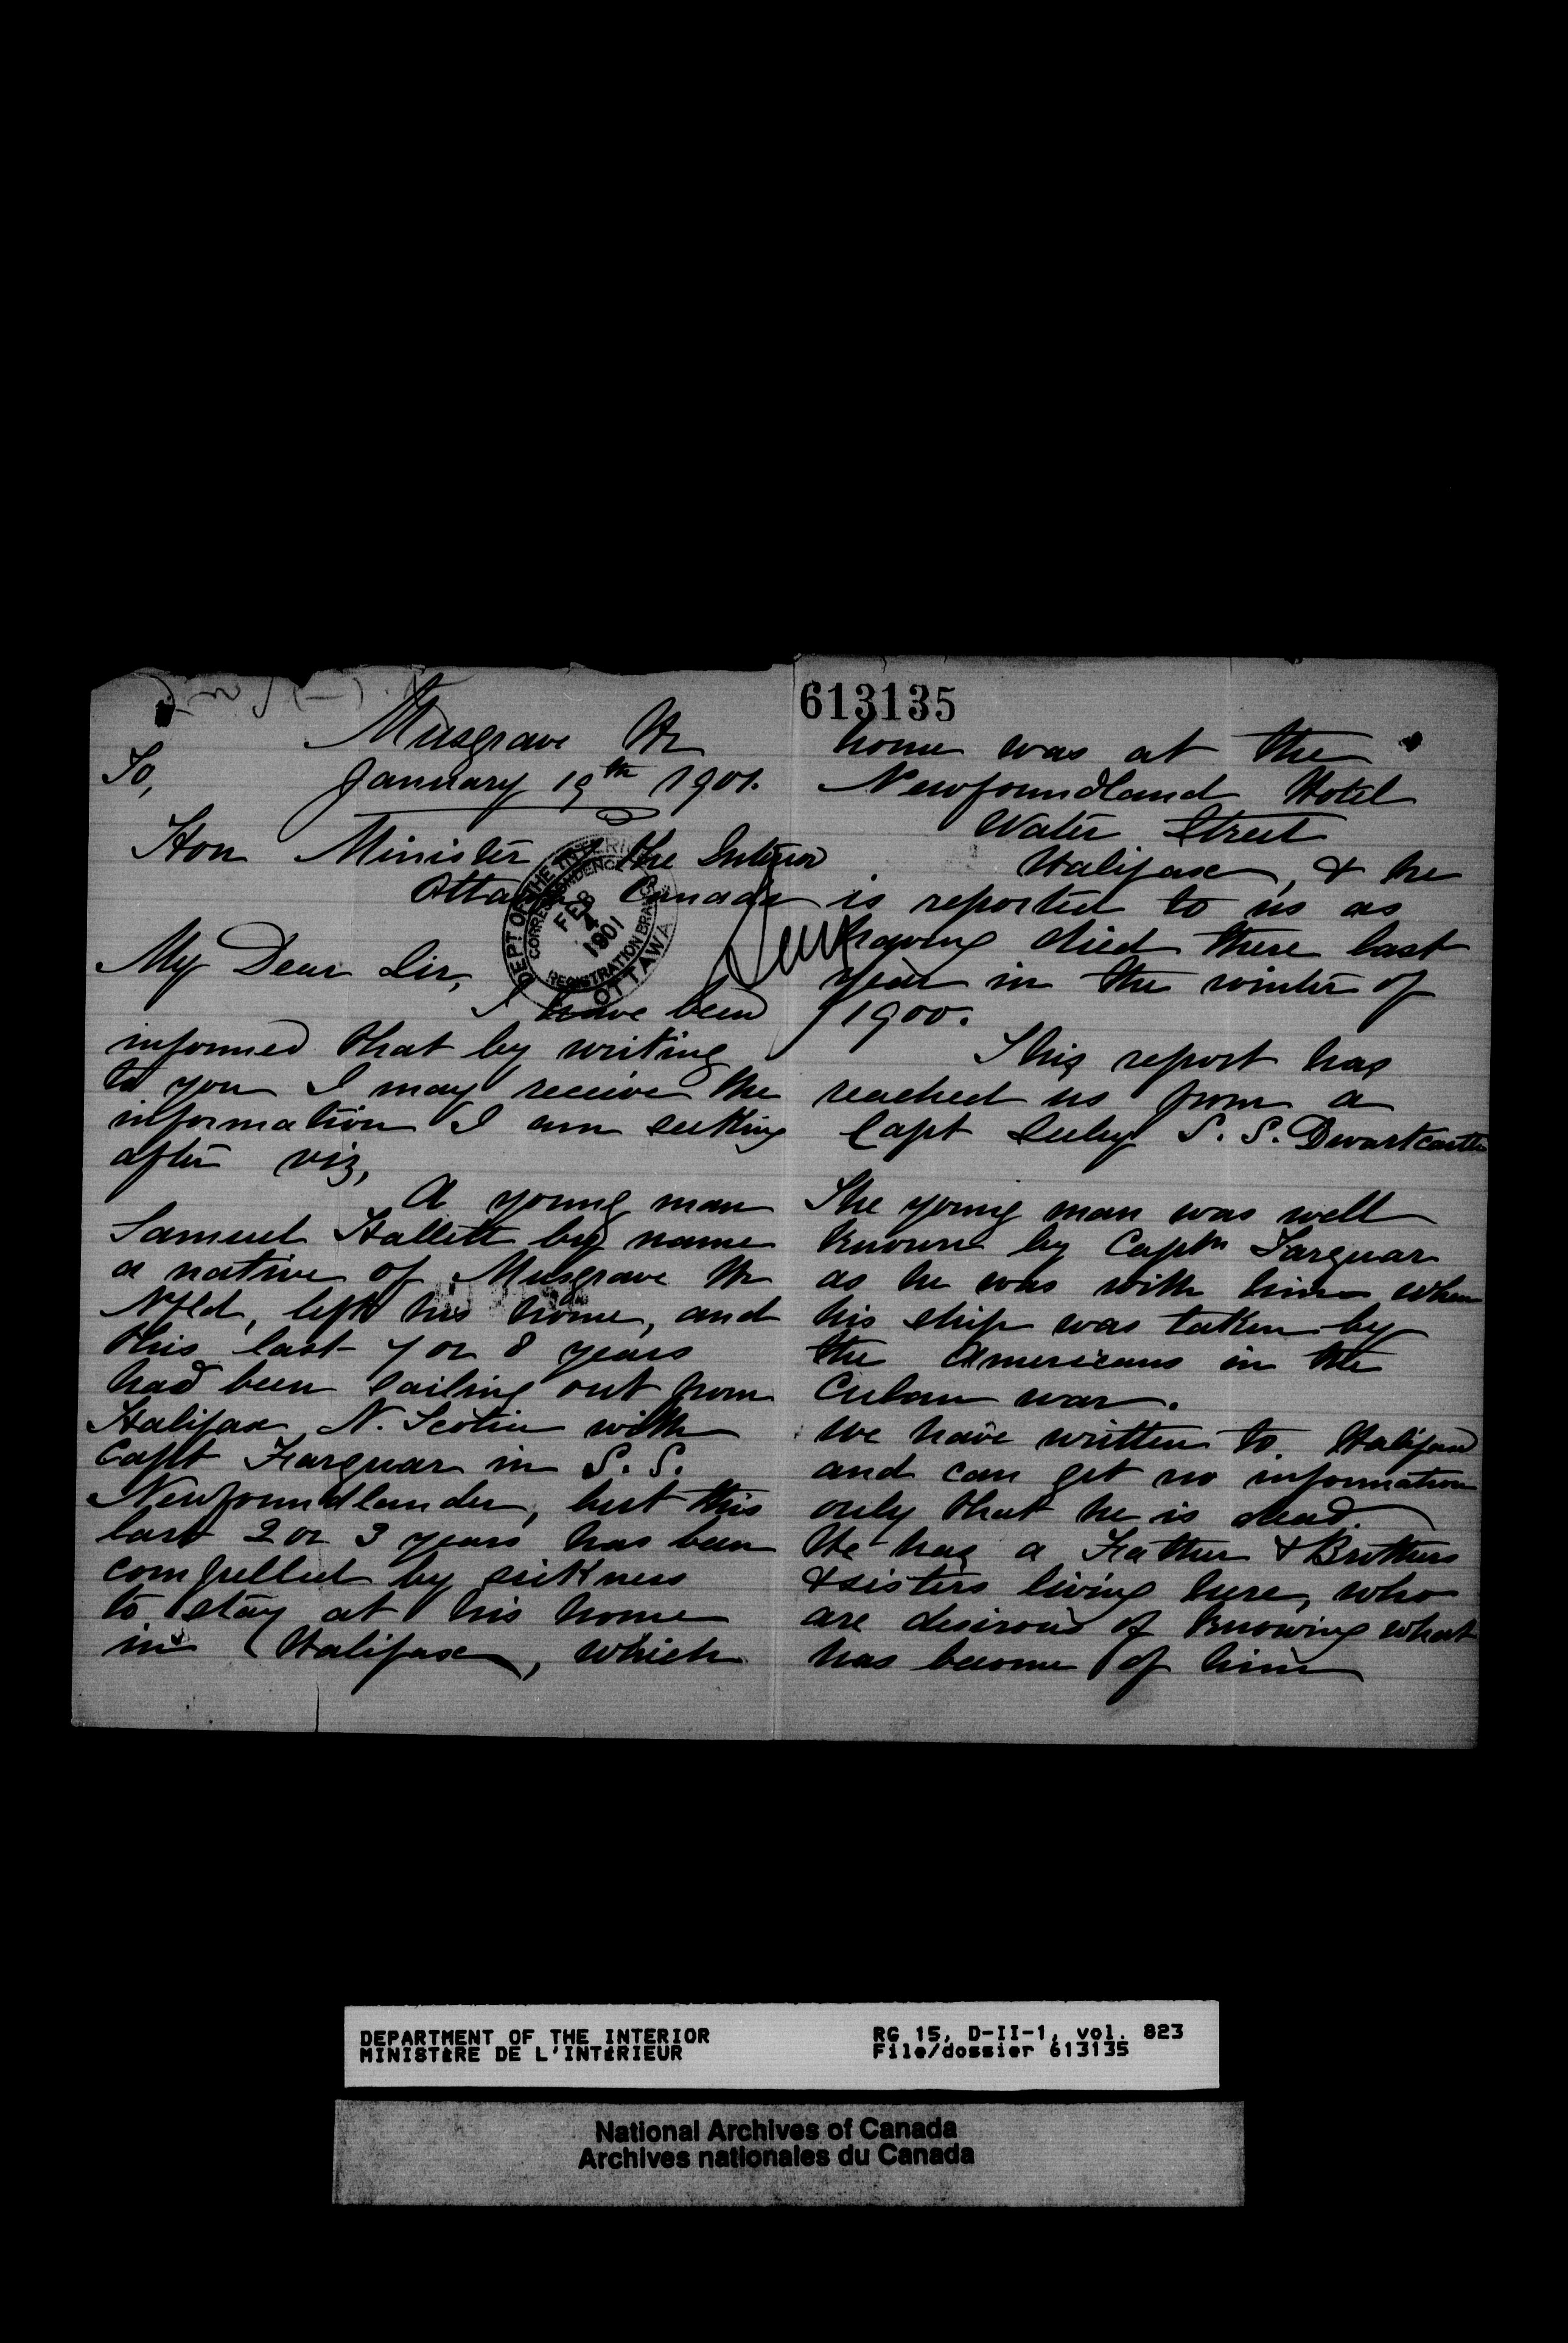 613135
Musgrave Hr
To,
January 19th 1901.
Hon Minister of the Interior
Ottawa Canada
DEPT OF THE INTERIOR
CORRESPONDENCE
FEB
4
1901
REGISTRATION BRANCH
OTTAWA
My Dear Sir,
I have been
informed that by writing
to you I may receive the
information I am seeking
after viz,
A young man
Samuel Hallett by name
a native of Musgrave Hr
Nfld, left his home, and
this last 7 or 8 years
had been sailing out from
Halifax N. Scotia with
Capt Farquar in S. S.
Newfoundlander, but this
last 2 or 3 years has been
compelled by sickness
to stay at his home
in Halifax, which
home was at the
Newfoundland Hotel
Water Street
Halifax, & he
is reported to us as
having died there last
year in the winter of
1900.
This report has
reached us from a
Capt S. S.
The young man was well
known by Captn Farquar
as he was with him when
his ship was taken by
the Americans in the
Cuban war.
We have written to Halifax
and can get no information
only that he is dead.
He has a Father & Brothers
& sisters living here, who
are desirous of knowing what
has become of him
DEPARTMENT OF THE INTERIOR
MINISTÈRE DE L'INTÉRIEUR
RG 15, D-II-1, vol. 823
File/dossier 613135
National Archives of Canada
Archives nationales du Canada